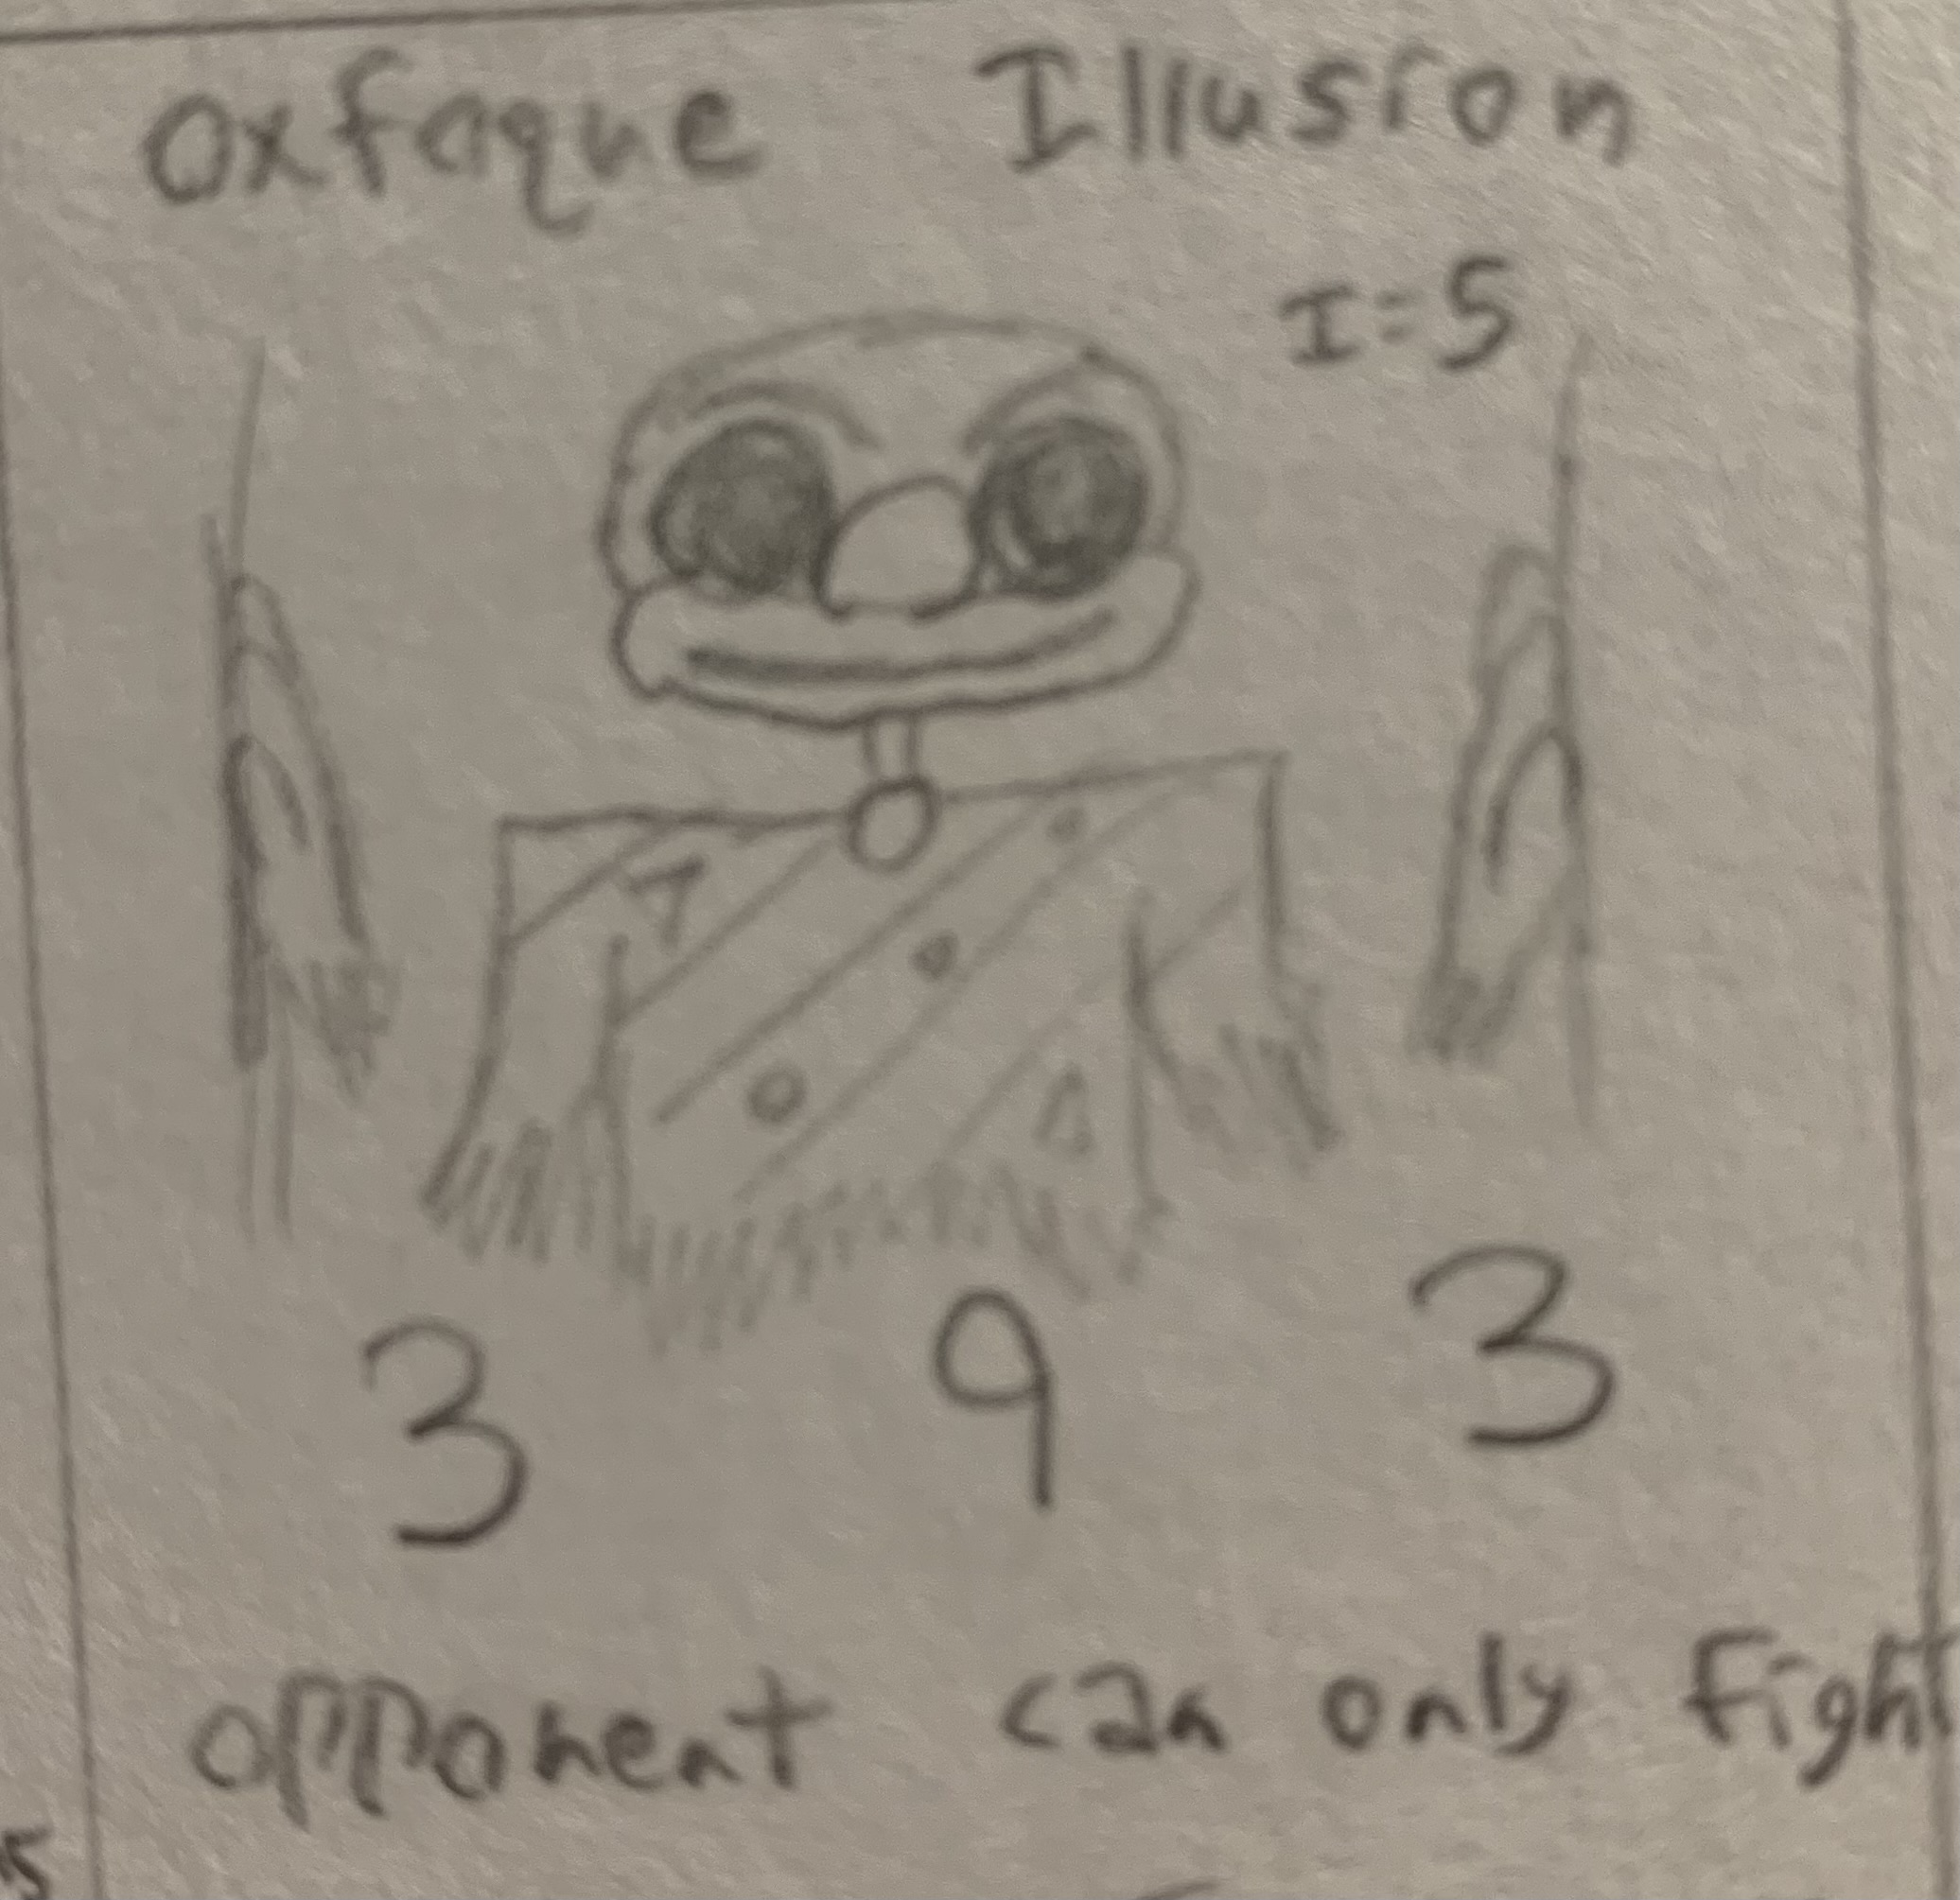 Oxfaque Illusion
I=5
3 9 3
opponent can only fight
5